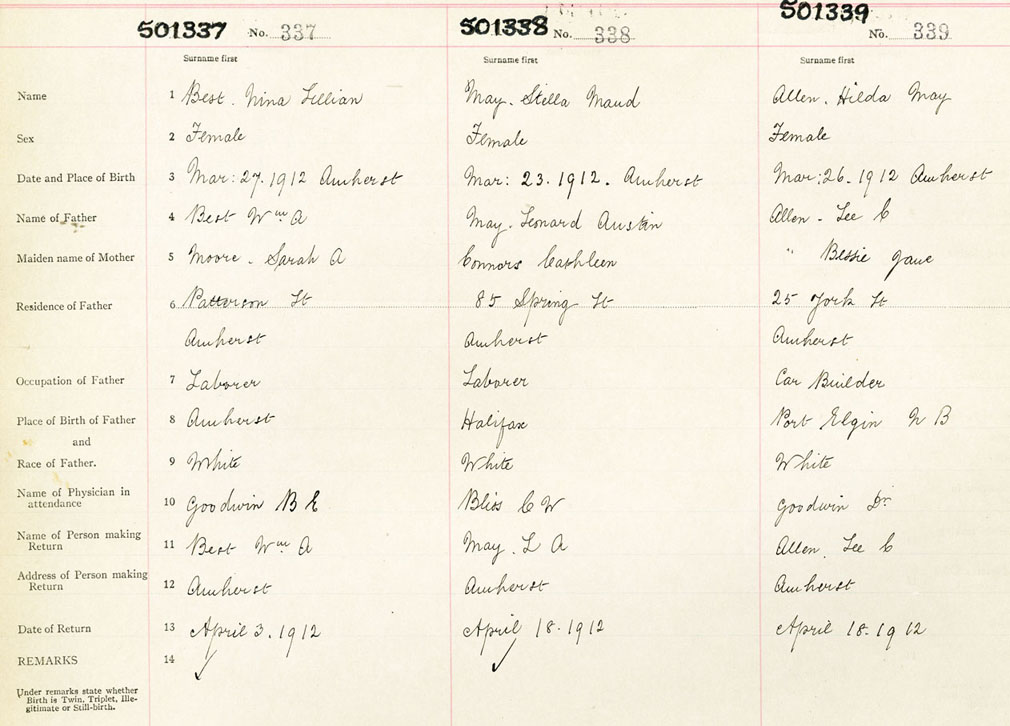 501337 No. 337 501338 No. 338 501339 No. 339
Surname first Surname first Surname first
Name 1 Best. Nina Lillian May. Stella Maud Allen. Hilda May
Sex 2 Female Female Female
Date and Place of Birth 3 Mar: 27. 1912 Amherst Mar: 23. 1912. Amherst Mar: 26. 1912 Amherst
Name of Father 4 Best Wm A May. Leonard Austin Allen - Lee C
Maiden name of Mother 5 Moore. Sarah A Connors Cathleen " Bessie Jane
Residence of Father 6 Patterson St 85 Spring St 25 York St
Amherst Amherst Amherst
Occupation of Father 7 Laborer Laborer Car Builder
Place of Birth of Father 8 Amherst Halifax Port Elgin N B
and
Race of Father. 9 White White White
Name of Physician in
attendance 10 Goodwin B E Bliss C W Goodwin Dr.
Name of Person making
Return 11 Best Wm A May. L A Allen. Lee C
Address of Person making
Return 12 Amherst Amherst Amherst
Date of Return 13 April 3. 1912 April 18. 1912 April 18. 1912
REMARKS 14
Under remarks state whether
Birth is Twin, Triplet, Ille-
gitimate or Still-birth.